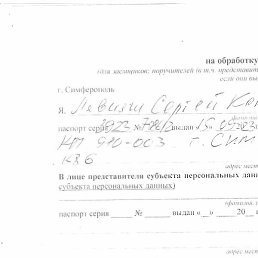 на обработку
(для заемщиков: поручителей (в т.ч. представит
если они вы
г. Симферополь
Я, Сергей
паспорт серия 3923 № выдан 15.09.2023
КП 910-003 г. СИМ
К86
адрес мест
В лице представителя субъекта персональных дан
субъекта персональных данных)
(фамилия,
паспорт серия _____ № _______ выдан «__» _____ 20__
адрес мест